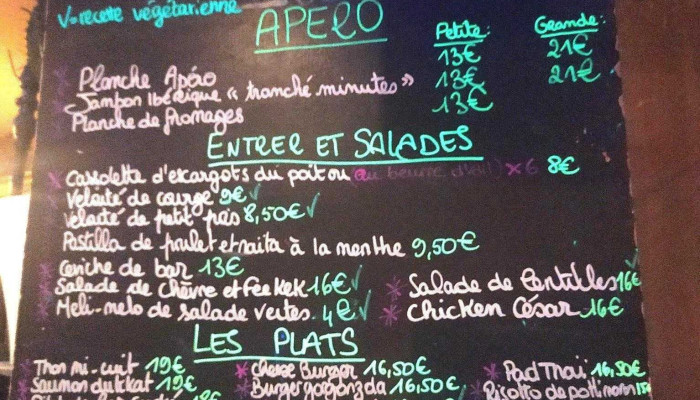 V=recette végétarienne
APERO
Petite: Grande:
Planche Apéro 13€ 21€
Jambon Ibérique "tranché minutes" 13€ 21€
Planche de fromages 13€
ENTRER ET SALADES
Cassolette d'escargots du poitou x6 8€
Velouté de courge 9€ ✓
Velouté de petit pois 8,50€ ✓
Pastilla de poulet et raita à la menthe 9,50€
Ceviche de bar 13€
Salade de Chèvre et Feekek 16€ ✓ Salade de Lentilles 16€ ✓
Meli-melo de salade vertes. 4€ ✓ Chicken César 16€
LES PLATS
Thon mi-cuit 19€ Cheese Burger 16,50€ Pad Thaï 16,50€
Saumon dukkat 19€ Burger gorgonzola 16,50€ Risotto de